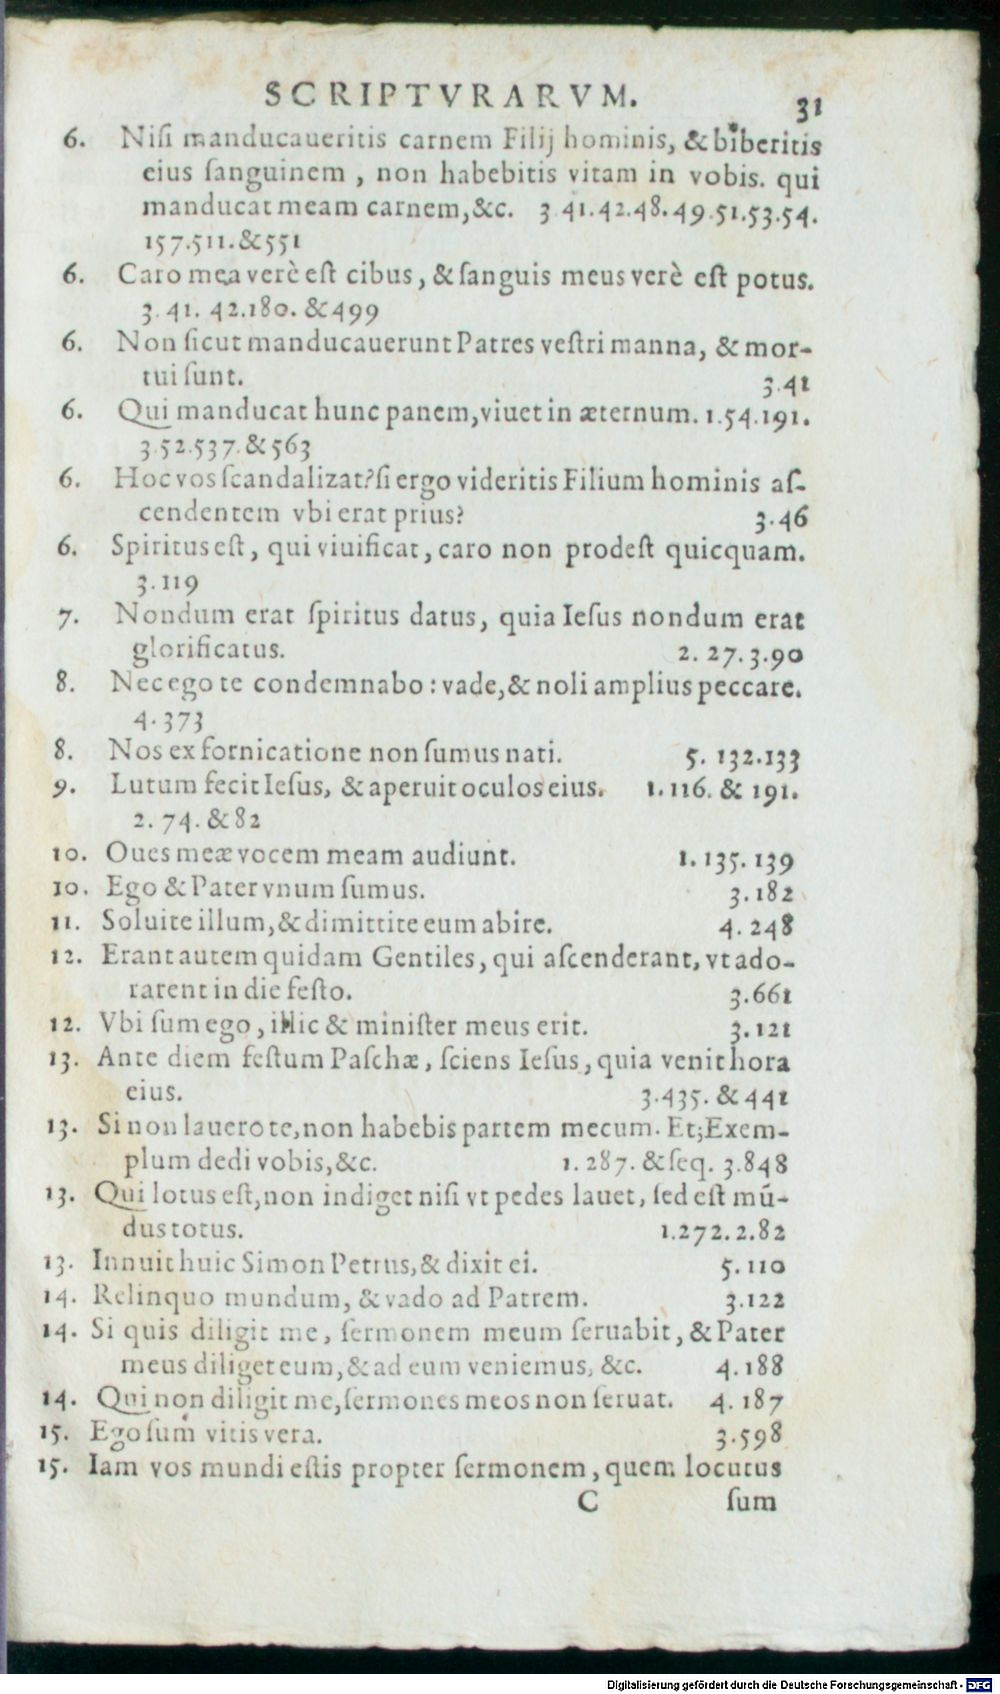 SCRIPTVRARVM. 31
6. Niſi manducaueritis carnem Filij hominis, & biberitis
eius ſanguinem, non habebitis vitam in vobis. qui
manducat meam carnem, &c. 3.41.42.48.49.51.53.54.
157.511.&551
6. Caro mea verè eſt cibus, & ſanguis meus verè eſt potus.
3.41.42.180.&499
6. Non ſicut manducauerunt Patres veſtri manna, & mor-
tui ſunt. 3.41
6. Qui manducat hunc panem, viuet in æternum. 1.54.191.
3.52.537.&563
6. Hoc vos ſcandalizat? ſi ergo videritis Filium hominis aſ-
cendentem vbi erat prius? 3.46
6. Spiritus eſt, qui viuificat, caro non prodeſt quicquam.
3.119
7. Nondum erat ſpiritus datus, quia Ieſus nondum erat
glorificatus. 2.27.3.90
8. Nec ego te condemnabo: vade, & noli amplius peccare.
4.373
8. Nos ex fornicatione non ſumus nati. 5.132.133
9. Lutum fecit Ieſus, & aperuit oculos eius. 1.116. & 191.
2.74.&82
10. Oues meæ vocem meam audiunt. 1.135.139
10. Ego & Pater vnum ſumus. 3.182
11. Soluite illum, & dimittite eum abire. 4.248
12. Erant autem quidam Gentiles, qui aſcenderant, vt ado-
rarent in die feſto. 3.661
12. Vbi ſum ego, illic & miniſter meus erit. 3.121
13. Ante diem feſtum Paſchæ, ſciens Ieſus, quia venit hora
eius. 3.435.&441
13. Si non lauero te, non habebis partem mecum. Et; Exem-
plum dedi vobis, &c. 1.287. & ſeq. 3.848
13. Qui lotus eſt, non indiget niſi vt pedes lauet, ſed eſt mū-
dus totus. 1.272.2.82
13. Innuit huic Simon Petrus, & dixit ei. 5.110
14. Relinquo mundum, & vado ad Patrem. 3.122
14. Si quis diligit me, ſermonem meum ſeruabit, & Pater
meus diliget eum, & ad eum veniemus, &c. 4.188
14. Qui non diligit me, ſermones meos non ſeruat. 4.187
15. Ego ſum vitis vera. 3.598
15. Iam vos mundi eſtis propter ſermonem, quem locutus
C ſum
Digitalisierung gefördert durch die Deutsche Forschungsgemeinschaft - DFG